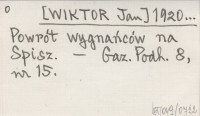 [WIKTOR Jan] 1920...
Powrót wygnańców na
Spisz. — Gaz. Podh. 8,
nr 15.